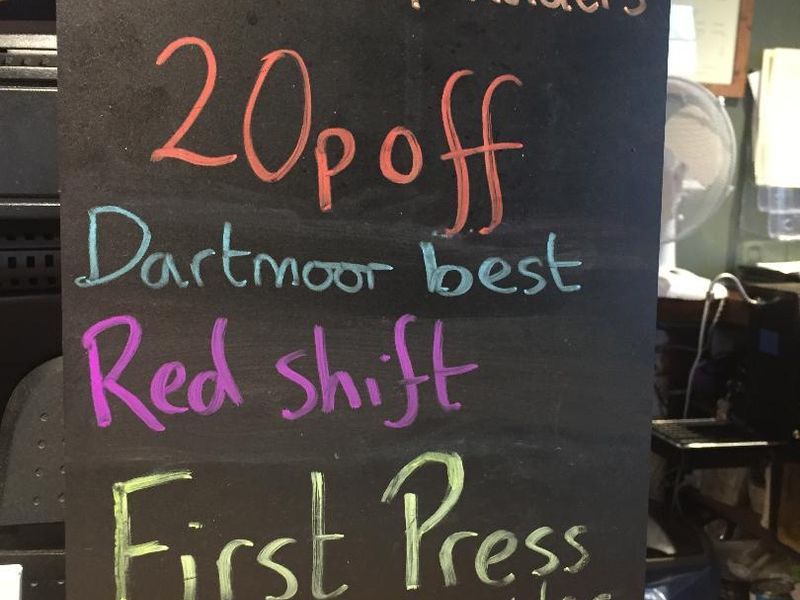 20p off
Dartmoor best
Red shift
First Press